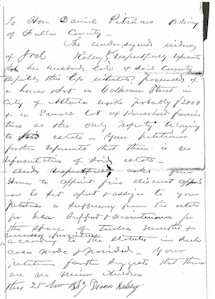 To Hon Daniel Pittman Ordinary
of Fulton County —
The undersigned widow
of Joel Kelsey respectfully represents
that her husband late of said County
departed this life intestate possessed of
a house & lot on Calhoun Street in
City of Atlanta worth probably $2000
or a small Lot of Household furni
ture as the only property belonging
to said estate — Your petitioner
further represents that there is no
representation of said estate —
and asks your
Honor to appoint five discreet
to set apart & assign to your
petitioner a sufficiency from the estate
for her support & maintenance for
the space of twelve months
according to the Statutes in such
case made & provided. Your
petitioner further suggests that there
are no minor children
this 20 Nov